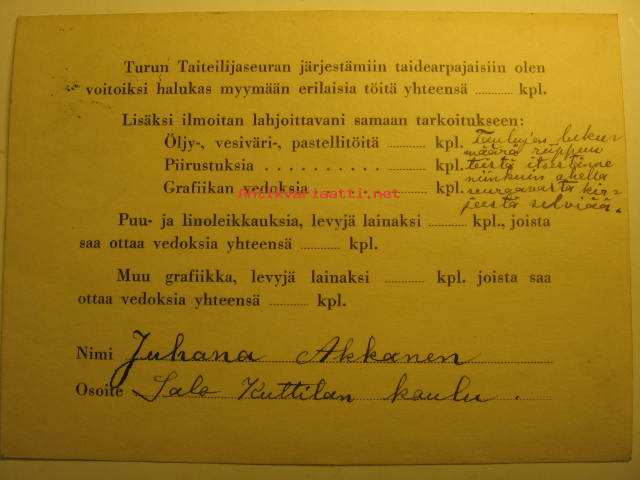 Turun Taiteilijaseuran järjestämiin taidearpajaisiin olen
voitoiksi halukas myymään erilaisia töitä yhteensä ........... kpl.
Lisäksi ilmoitan lahjoittavani samaan tarkoitukseen:
Öljy-, vesiväri-, pastellitöitä ........... kpl.
Piirustuksia . . . . . . . . . . ........... kpl.
Grafiikan vedoksia . . . . . ........... kpl.
Taulujen luku-
määrä riippuu
teistä itsestänne
niinkuin ohella
seuraavasta kir-
jeestä selviää.
Antikvariaatti.net
Puu- ja linoleikkauksia, levyjä lainaksi ........... kpl., joista
saa ottaa vedoksia yhteensä ........... kpl.
Muu grafiikka, levyjä lainaksi ........... kpl. joista saa
ottaa vedoksia yhteensä ........... kpl.
Nimi Juhana Akkanen
Osoite Salo Kuttilan koulu.